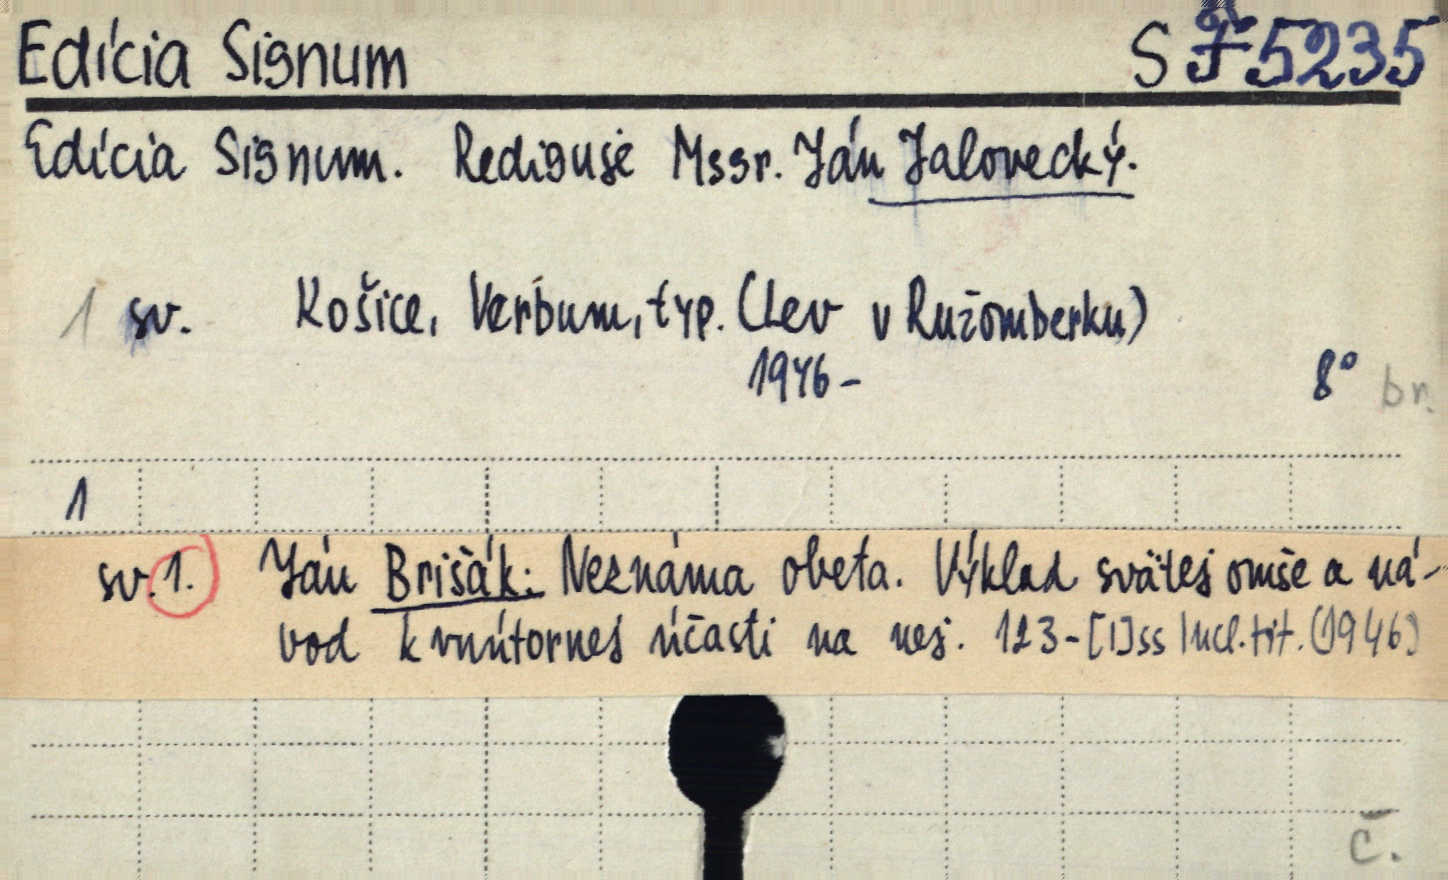 Edícia Signum S F 5235
Edícia Signum. Rediguje Mssr. Ján Jalovecký.
1 sv. Košice, Verbum, typ. (Lev v Ružomberku)
1946- 8° br.
1
sv. 1. Ján Brišák: Neznáma obeta. Výklad svätej omše a ná-
vod k vnútornej účasti na nej. 123-[1]ss Incl. tit. (1946)
č.